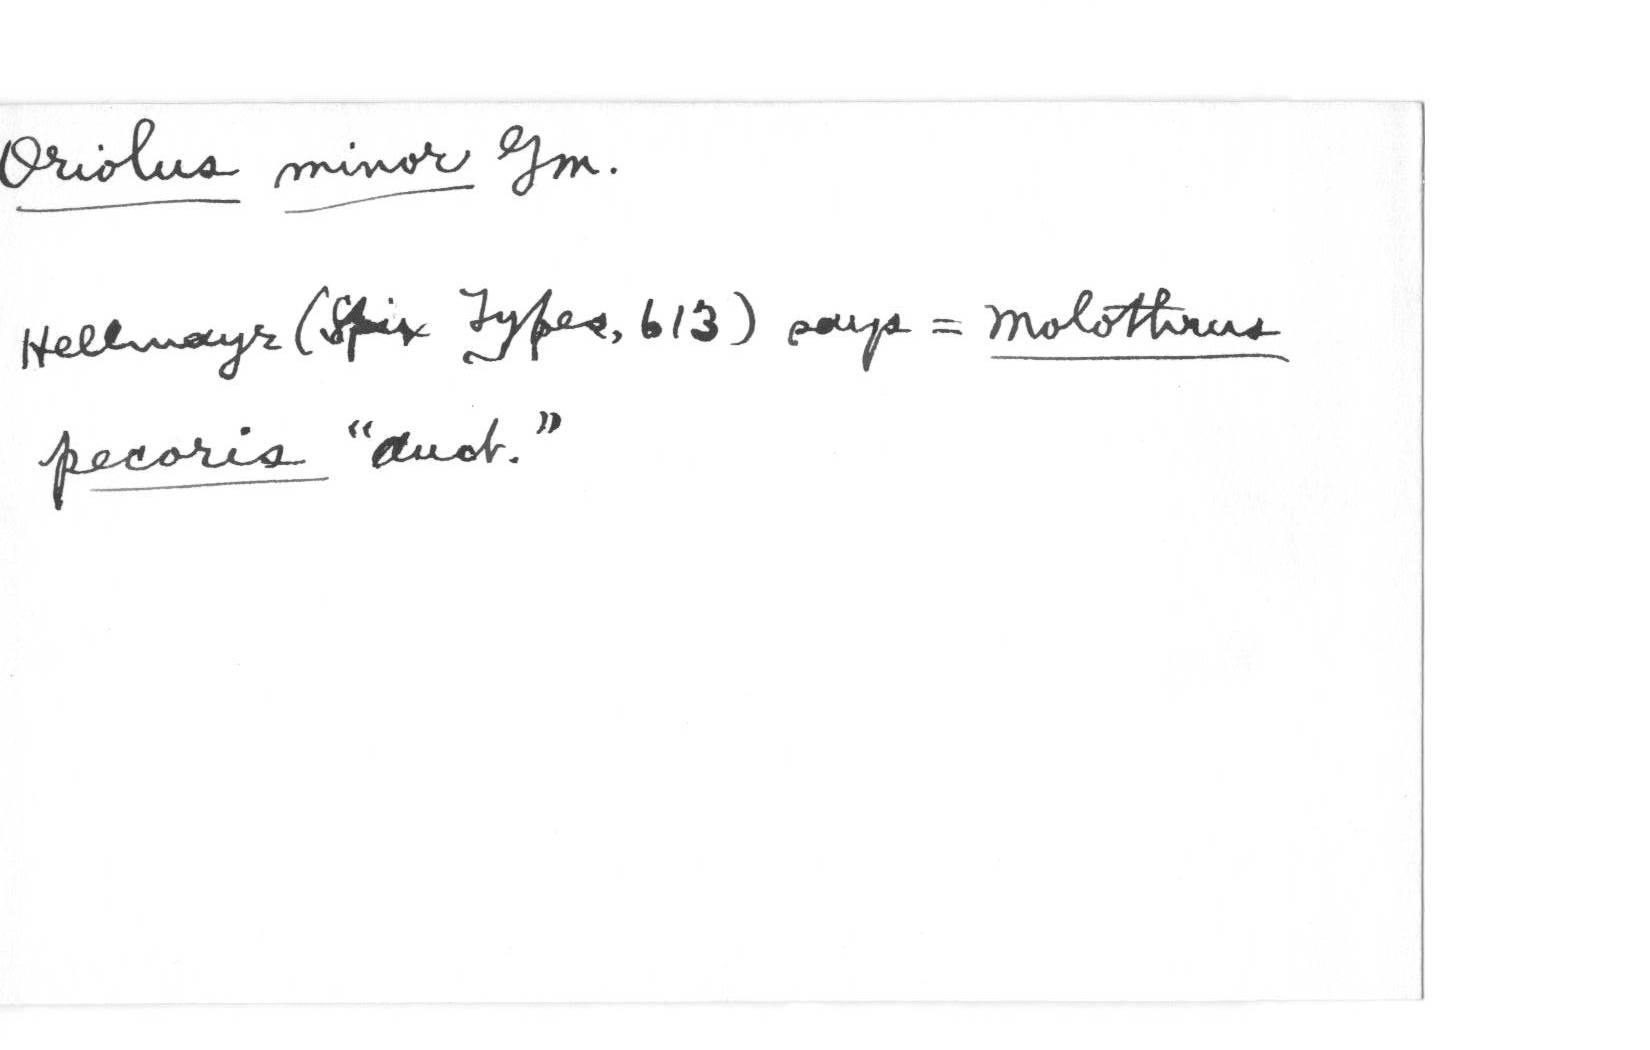 Oriolus minor Gm.
Hellmayr (Spix Types, 613) says = Molothrus
pecoris "auct."